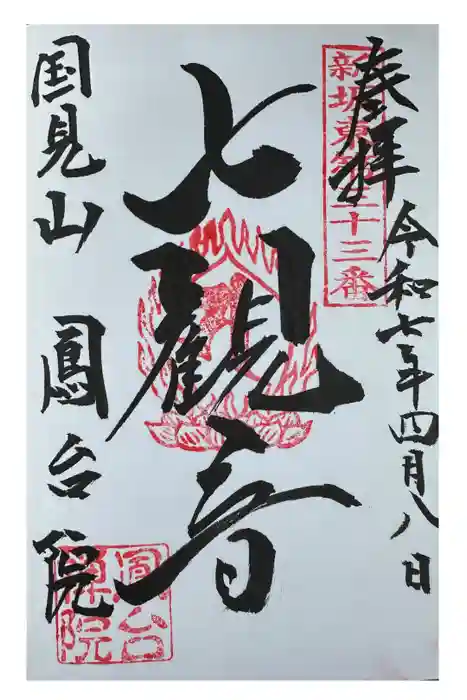 奉拝
令和七年四月八日
新坂東第三十三番
七観音
国見山 鳳台院
鳳台
禅院